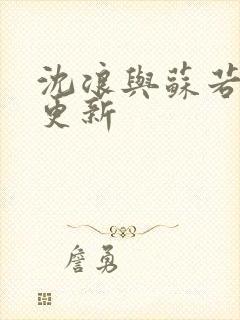 沈浪與蘇若
更新
詹勇